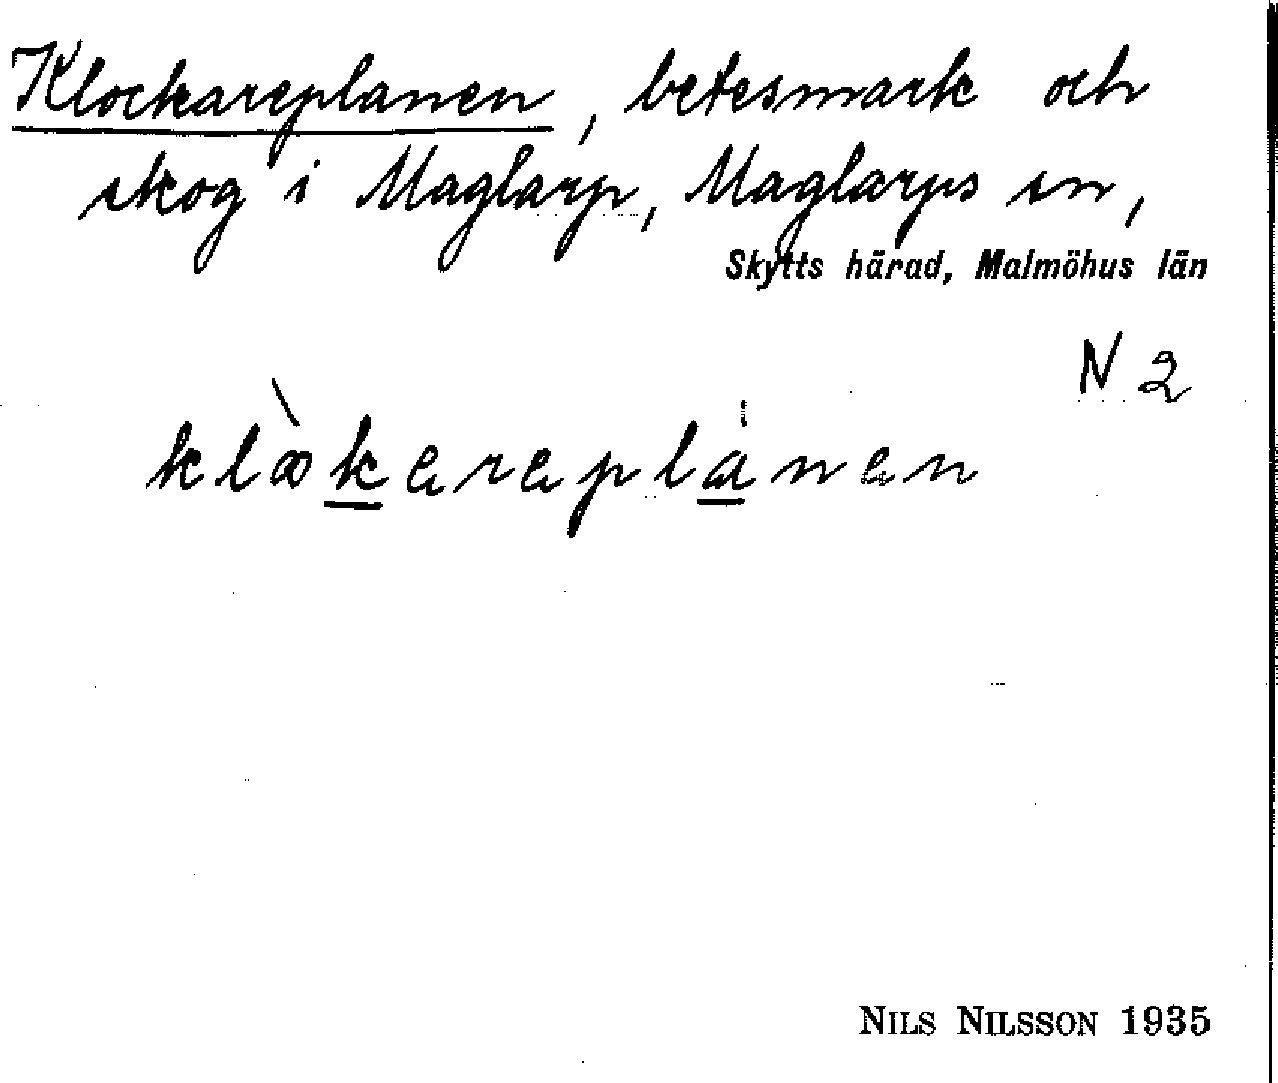 Klockareplanen, betesmark och
skog i Maglarp, Maglarps sn,
Skytts härad, Malmöhus län
N 2
klòkareplánen
NILS NILSSON 1935